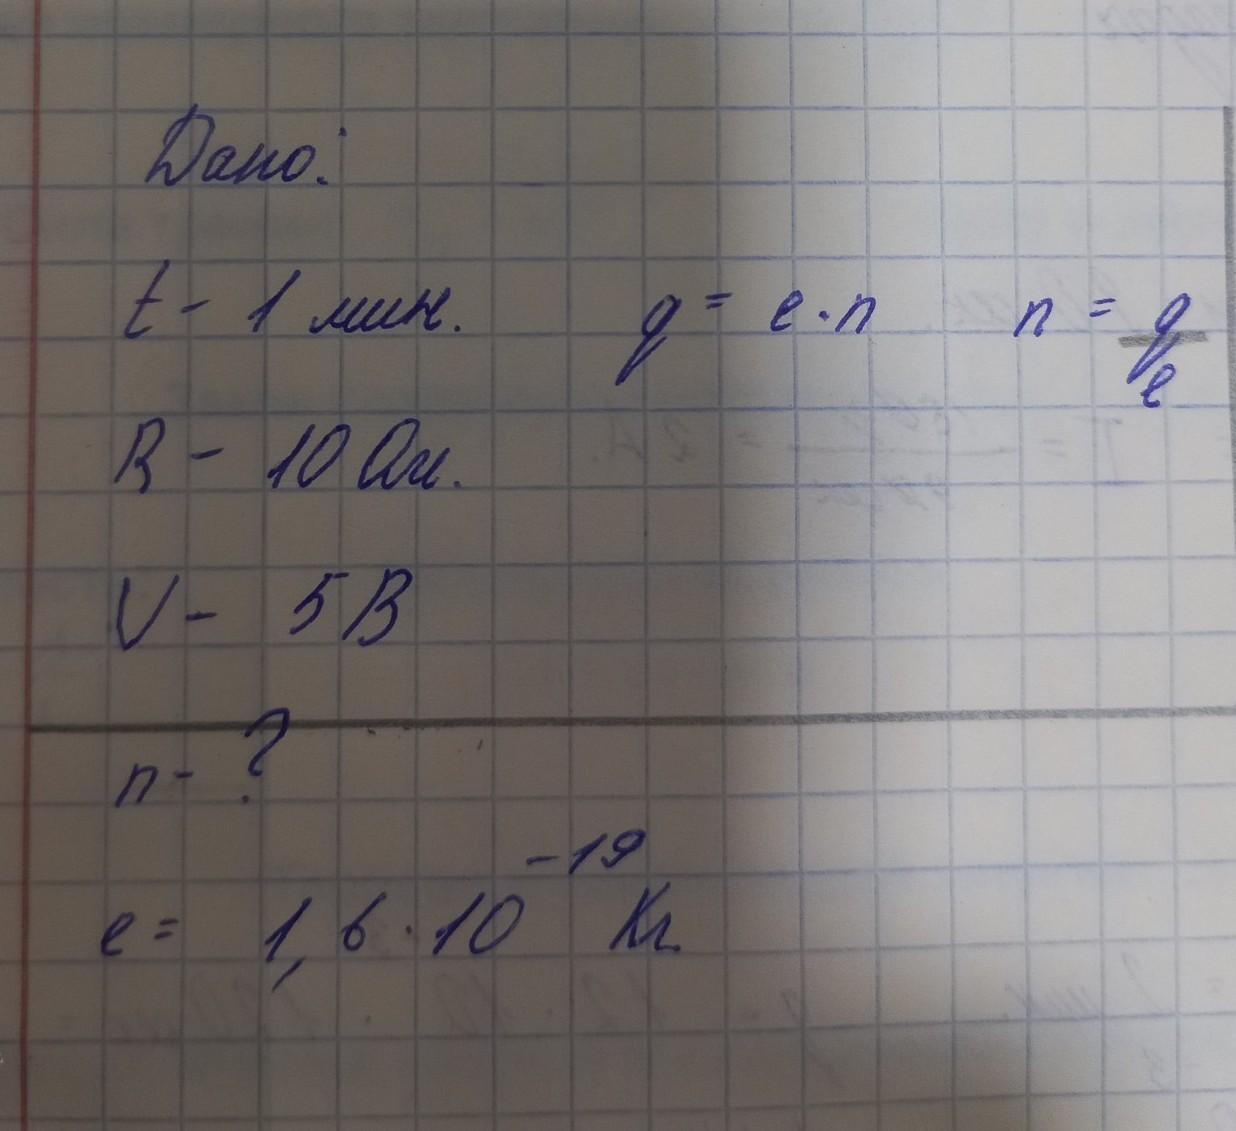 Дано:
t - 1 мин. q = e · n n = q/e
R - 10 Ом.
U - 5 В
n - ?
e = 1,6 · 10⁻¹⁹ Кл